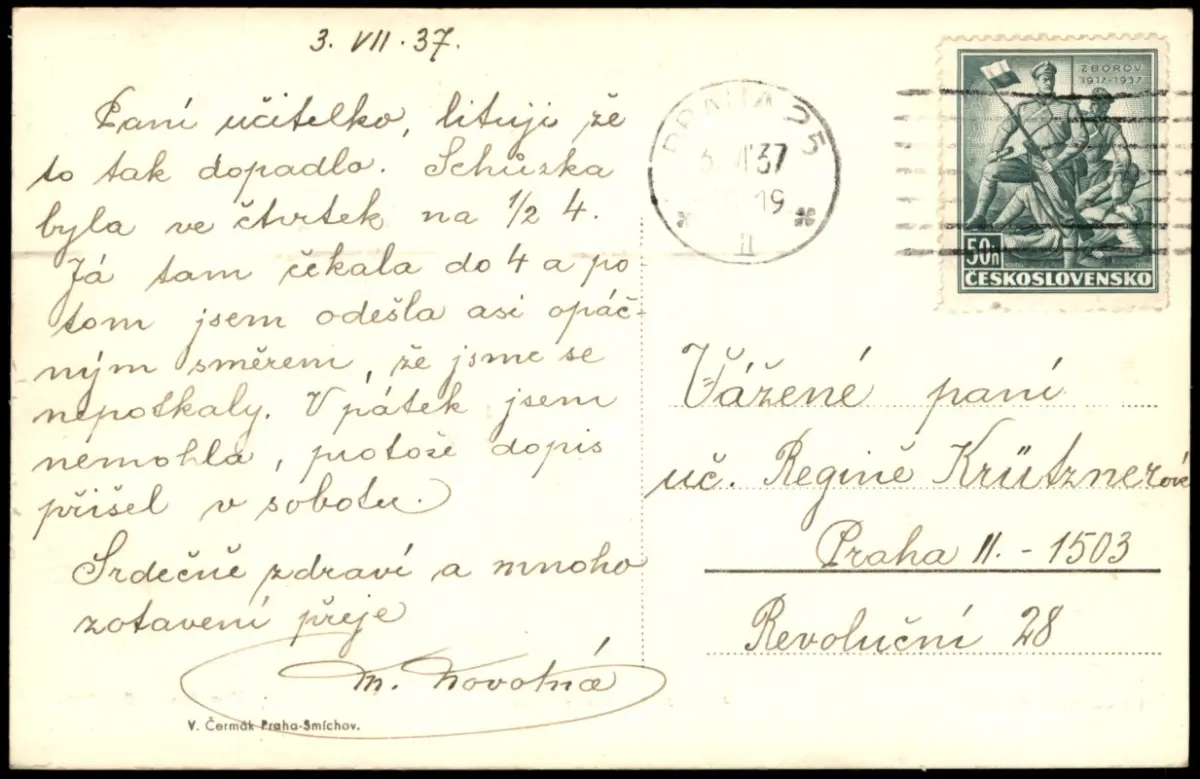 3. VII. 37.
Paní učitelko, lituji že
to tak dopadlo. Schůzka
byla ve čtvrtek na 1/2 4.
Já tam čekala do 4 a po
tom jsem odešla asi opáč-
ným směrem, že jsme se
nepotkaly. V pátek jsem
nemohla, protože dopis
přišel v sobotu.
Srdečně zdraví a mnoho
zotavení přeje
M. Novotná
V. Čermák Praha-Smíchov.
PRAHA 25
37
19
II
ZBOROV
1917-1937
50h
ČESKOSLOVENSKO
Vážené paní
uč. Regině Krütznerové
Praha II. - 1503
Revoluční 28